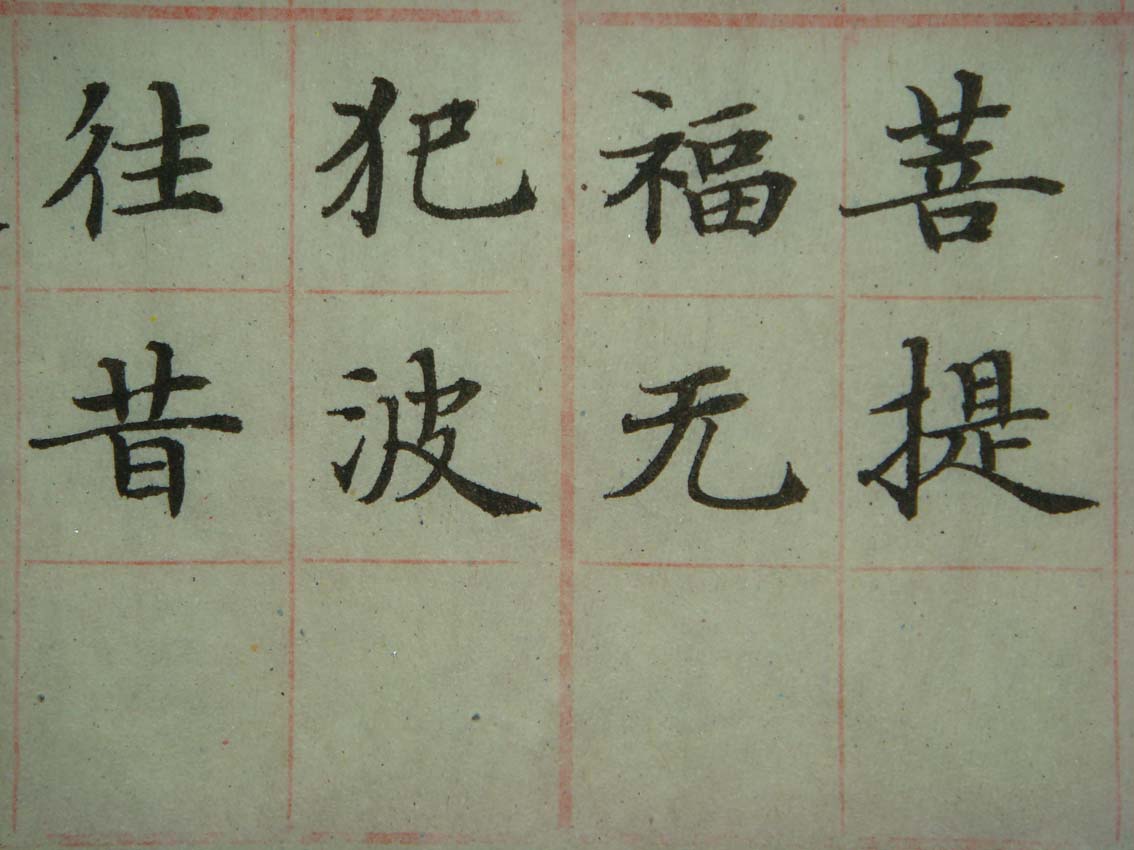 菩提
福无
犯波
往昔